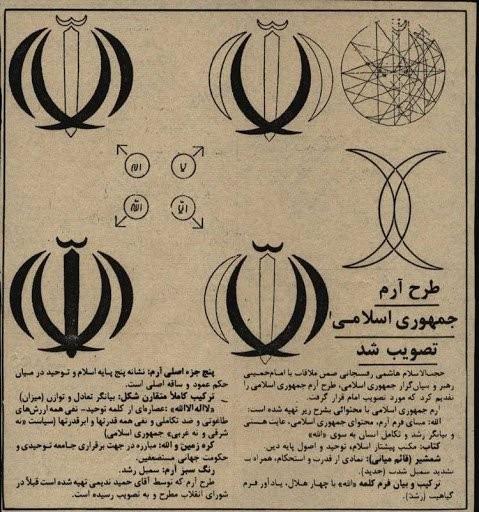 اله
لا
الله
الا
طرح آرم
جمهوری اسلامی
تصویب شد
حجت‌الاسلام هاشمی رفسنجانی ضمن ملاقات با امام‌خمینی
رهبر و بنیان‌گزار جمهوری اسلامی، طرح آرم جمهوری اسلامی را
تقدیم کرد که مورد تصویب امام قرار گرفت.
آرم جمهوری اسلامی با محتوائی بشرح زیر تهیه شده است:
الله: مبنای فرم آرم، محتوای جمهوری اسلامی، غایت هستی
و بیانگر رشد و تکامل انسان به سوی «الله»
کتاب: مکتب پیشتاز اسلام، توحید و اصول پایه دین.
شمشیر (قائم میانی): نمادی از قدرت و استحکام، همراه با
تشدید سمبل شدت (حدید).
ترکیب و بیان فرم کلمه «الله» با چهار هلال، یادآور فرم
گیاهیت (رشد).
پنج جزء اصلی آرم: نشانه پنج پایه اسلام و توحید در میان
حکم عمود و ساقه اصلی است.
ترکیب کاملاً متقارن شکل: بیانگر تعادل و توازن (میزان)
«لااله‌الاالله»: عصاره‌ای از کلمه توحید، نفی همه ارزش‌های
طاغوتی و ضد تکاملی و نفی همه قدرتها و ابرقدرتها (سیاست «نه
شرقی و نه غربی» جمهوری اسلامی)
کره زمین و الله: مبارزه در جهت برقراری جامعه توحیدی و
حکومت جهانی مستضعفین.
رنگ سبز آرم: سمبل رشد.
طرح آرم که توسط آقای حمید ندیمی تهیه شده است قبلاً در
شورای انقلاب مطرح و به تصویب رسیده است.